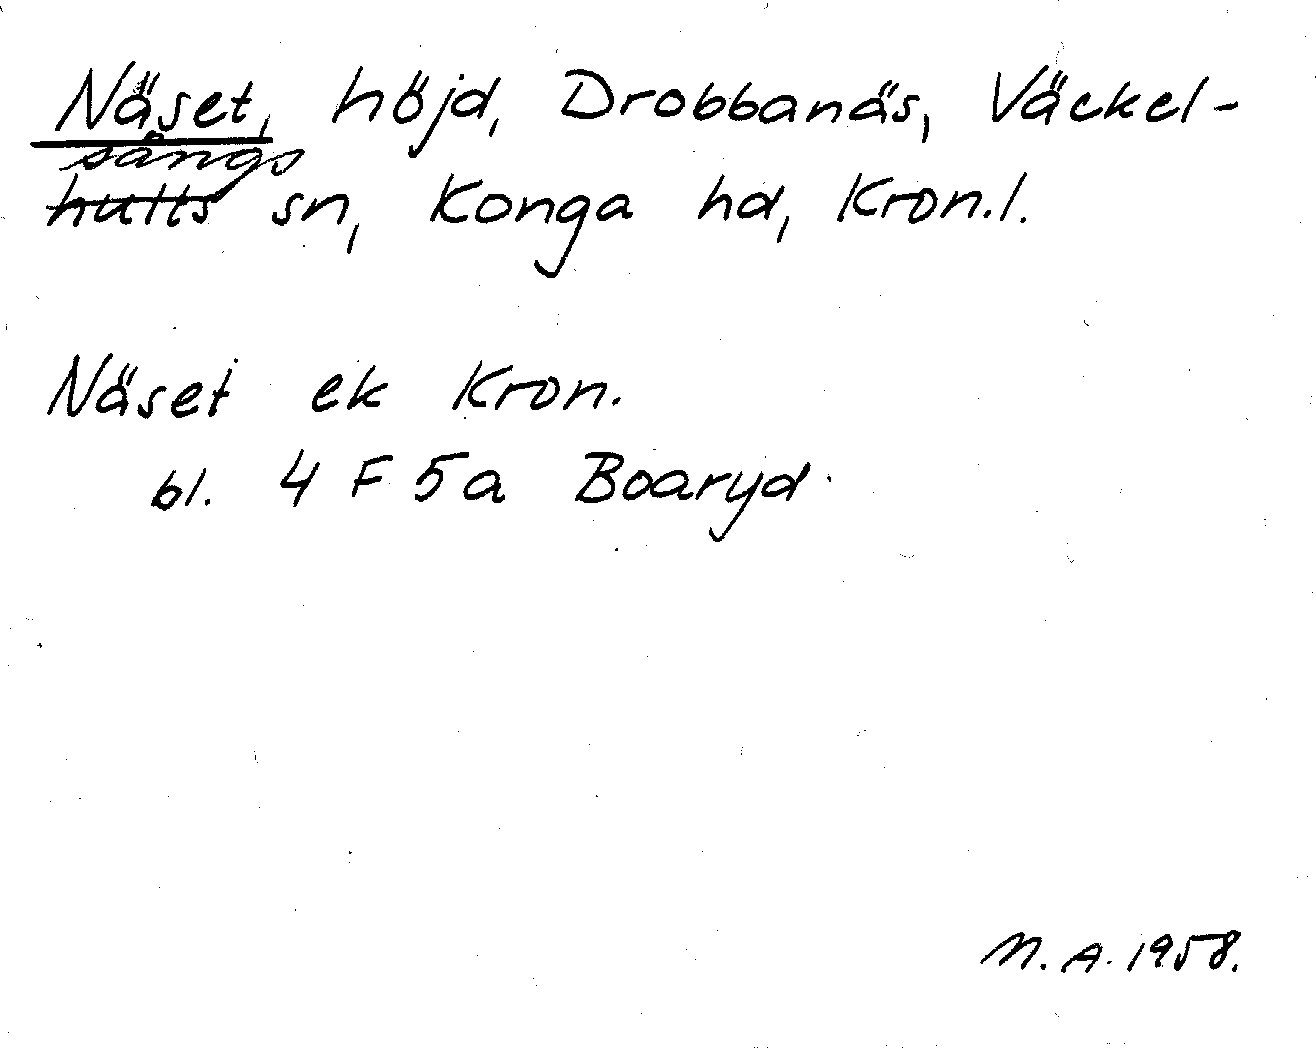 Näset, höjd, Drobbanäs, Väckel-
sångs
hults sn, Konga hd, Kron.l.
Näset ek Kron.
bl. 4 F 5a Boaryd
M. A. 1958.